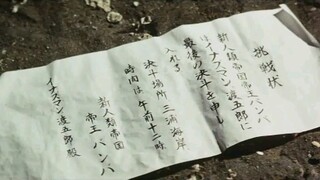 挑戦状
新人類帝国帝王バンバ
はイナズマン渡五郎に
最後の決斗を申し
入れる
決斗場所 三浦海岸
時間は午前十二時
新人類帝国
帝王バンバ
イナズマン 渡五郎殿